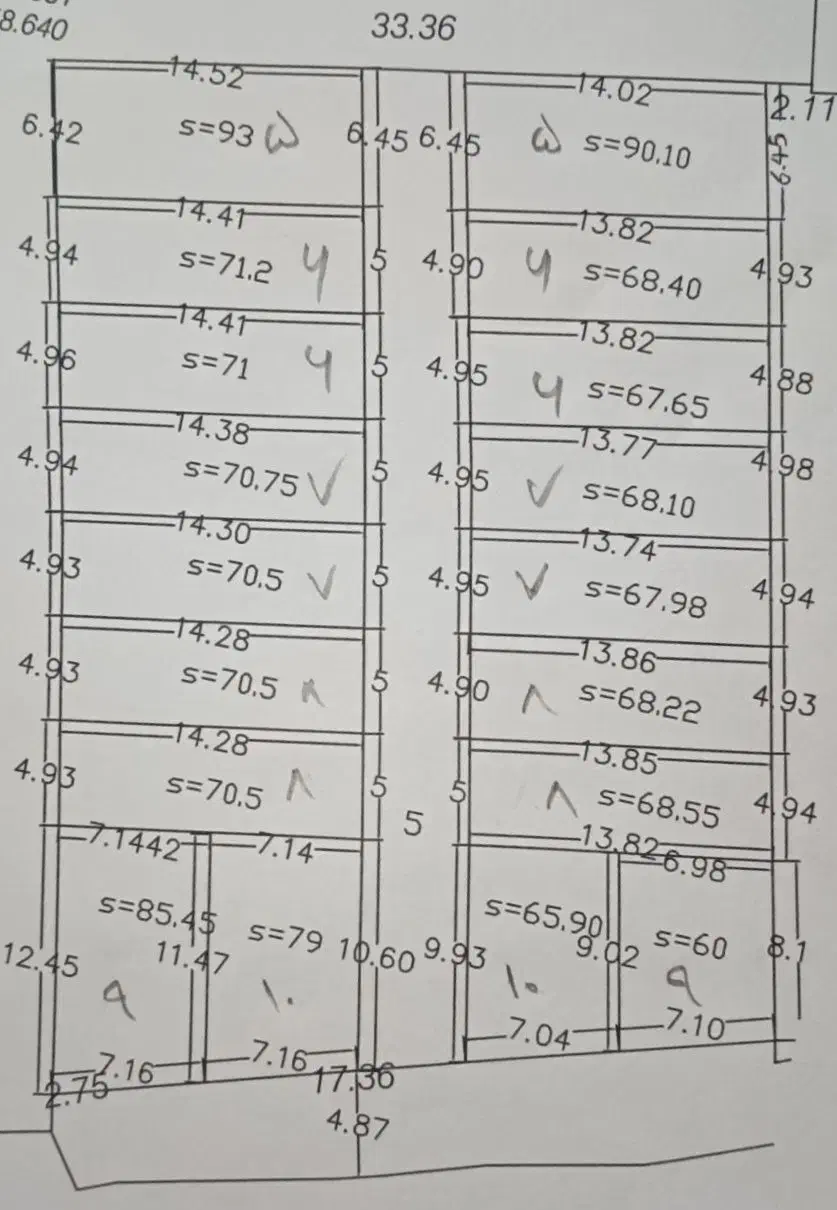 8.640
33.36
14.52 14.02 2.11
6.42 s=93 ۵ 6.45 6.45 ۵ s=90,10 6.45
14.41 13.82
4.94 s=71,2 ۴ 5 4.90 ۴ s=68,40 4.93
14.41 13.82
4.96 s=71 ۴ 5 4.95 ۴ s=67,65 4.88
14.38 13.77
4.94 s=70,75 ۷ 5 4.95 ۷ s=68,10 4.98
14.30 13.74
4.93 s=70,5 ۷ 5 4.95 ۷ s=67,98 4.94
14.28 13.86
4.93 s=70,5 ۸ 5 4.90 ۸ s=68,22 4.93
14.28 13.85
4.93 s=70,5 ۸ 5 5 ۸ s=68,55 4.94
5
7.1442 7.14 13.82 6.98
s=85,45 s=79 s=65,90 s=60
12.45 11.47 10.60 9.93 9.02 8.1
۹ ۱۰ ۱۰ ۹
7.16 7.16 7.04 7.10
2.75 17.36
4.87